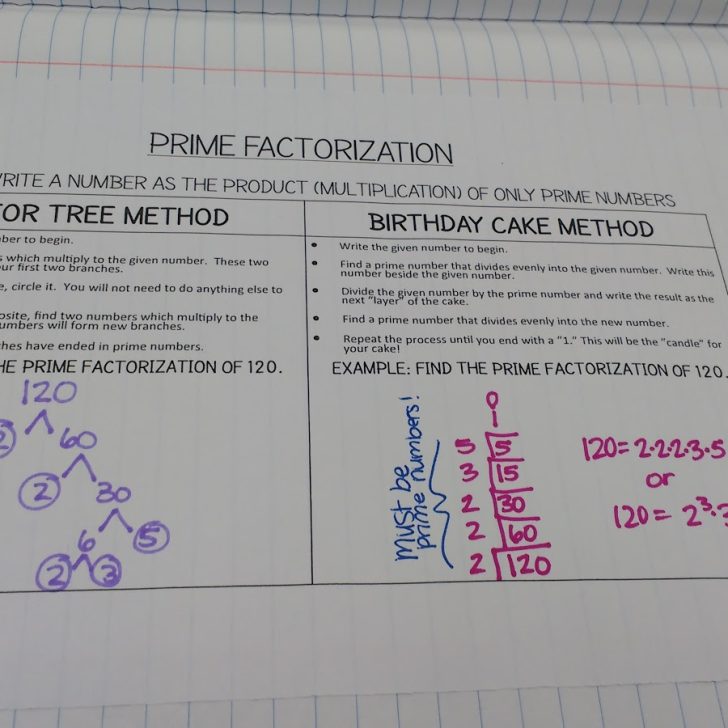 PRIME FACTORIZATION
WRITE A NUMBER AS THE PRODUCT (MULTIPLICATION) OF ONLY PRIME NUMBERS
TREE METHOD
to begin.
which multiply to the given number. These two
first two branches.
circle it. You will not need to do anything else to
find two numbers which multiply to the
will form new branches.
have ended in prime numbers.
PRIME FACTORIZATION OF 120.
120
2 60
2 30
6 5
2 3
BIRTHDAY CAKE METHOD
• Write the given number to begin.
• Find a prime number that divides evenly into the given number. Write this
number beside the given number.
• Divide the given number by the prime number and write the result as the
next "layer" of the cake.
• Find a prime number that divides evenly into the new number.
• Repeat the process until you end with a "1." This will be the "candle" for
your cake!
EXAMPLE: FIND THE PRIME FACTORIZATION OF 120.
must be
prime numbers!
1
5 5
3 15
2 30
2 60
2 120
120=2·2·2·3·5
or
120= 2³·3